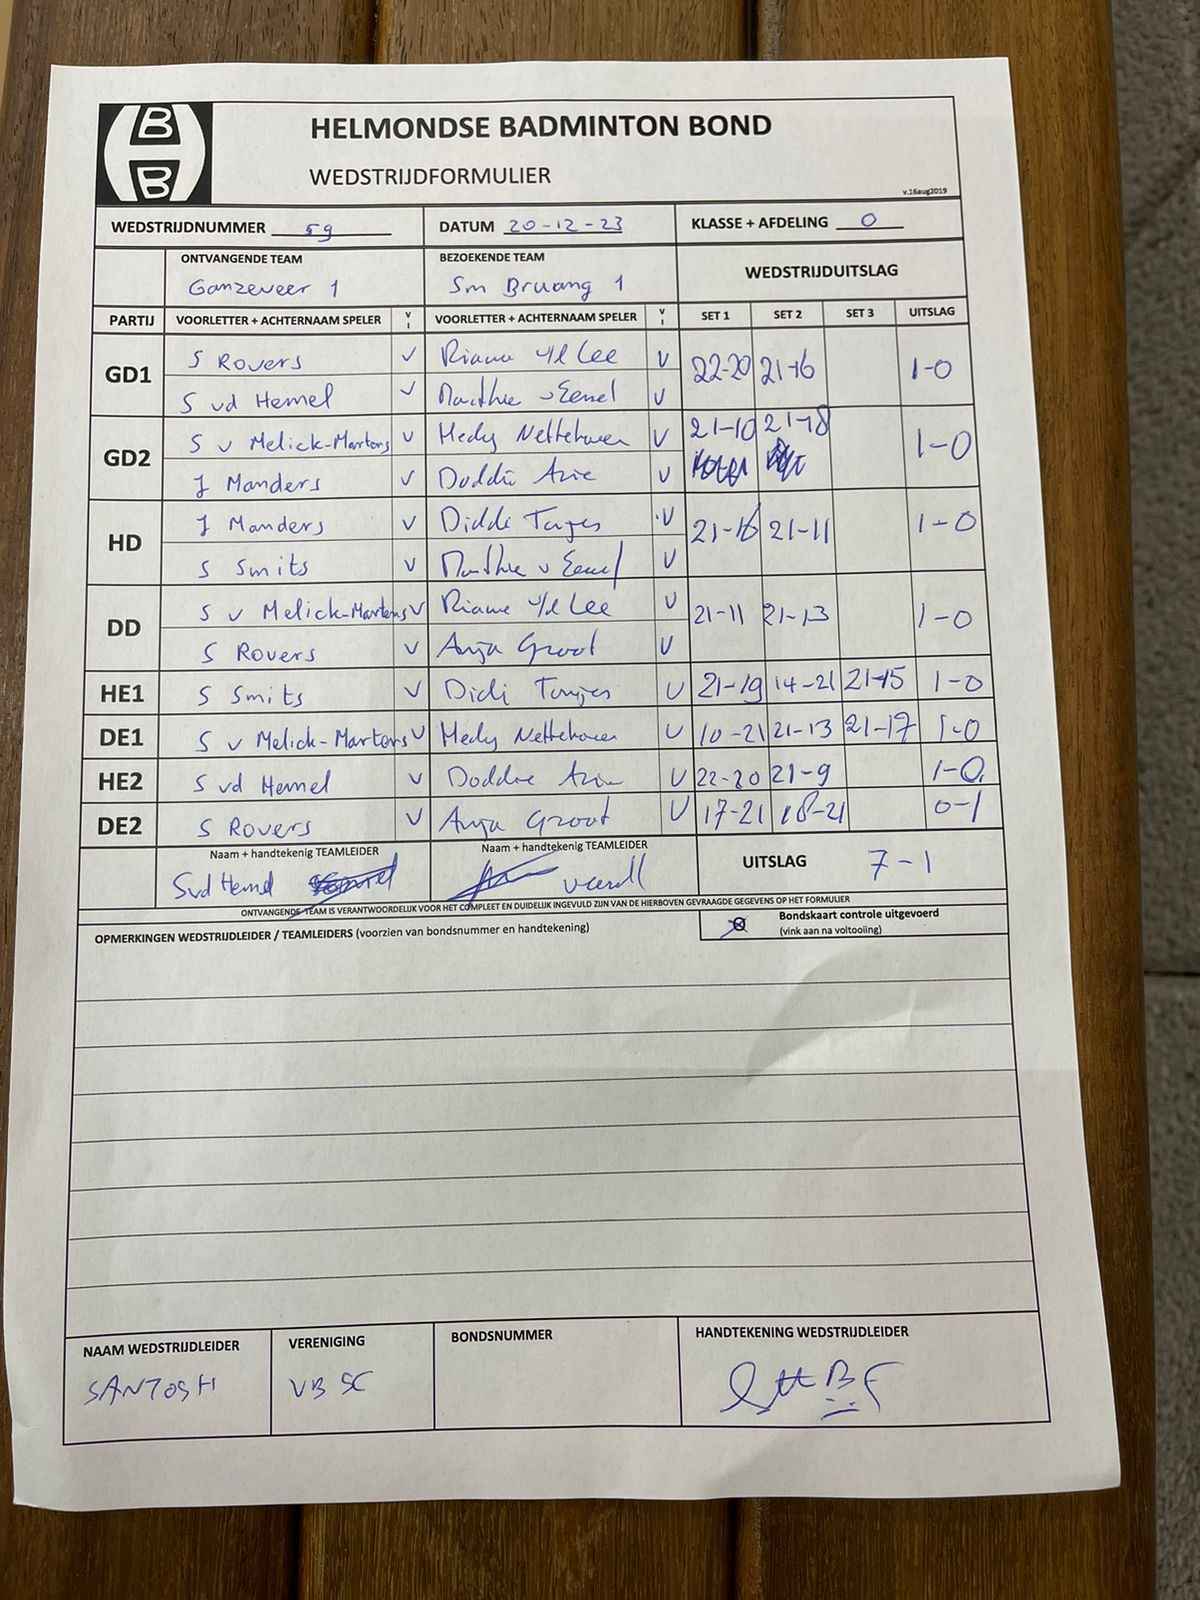 B
B
HELMONDSE BADMINTON BOND
WEDSTRIJDFORMULIER
v.16aug2019
WEDSTRIJDNUMMER 59 DATUM 20-12-23 KLASSE + AFDELING 0
ONTVANGENDE TEAM BEZOEKENDE TEAM WEDSTRIJDUITSLAG
Ganzeveer 1 Sm Bruang 1
PARTIJ VOORLETTER + ACHTERNAAM SPELER V I VOORLETTER + ACHTERNAAM SPELER V I SET 1 SET 2 SET 3 UITSLAG
GD1 S Rovers V Riama v/d Lee V 22-20 21-16 1-0
S vd Hemel V v Eemel V
GD2 S v Melick-Martens V Hedy Nettehoven V 21-10 21-18 1-0
J Manders V Doddie Azie V
HD J Manders V Diddi V 21-16 21-11 1-0
S Smits V v Eemel V
DD S v Melick-Martens V Riame v/d Lee V 21-11 21-13 1-0
S Rovers V Anja Groot V
HE1 S Smits V Didi V 21-19 14-21 21-15 1-0
DE1 S v Melick-Martens V Hedy Nettehoven V 10-21 21-13 21-17 1-0
HE2 S vd Hemel V Doddie Azie V 22-20 21-9 1-0
DE2 S Rovers V Anja Groot V 17-21 18-21 0-1
Naam + handtekenig TEAMLEIDER Naam + handtekenig TEAMLEIDER UITSLAG 7-1
Svd Hemel
ONTVANGENDE TEAM IS VERANTWOORDELIJK VOOR HET COMPLEET EN DUIDELIJK INGEVULD ZIJN VAN DE HIERBOVEN GEVRAAGDE GEGEVENS OP HET FORMULIER
OPMERKINGEN WEDSTRIJDLEIDER / TEAMLEIDERS (voorzien van bondsnummer en handtekening)
Bondskaart controle uitgevoerd
(vink aan na voltooiing)
NAAM WEDSTRIJDLEIDER VERENIGING BONDSNUMMER HANDTEKENING WEDSTRIJDLEIDER
SANTOSH VB SC